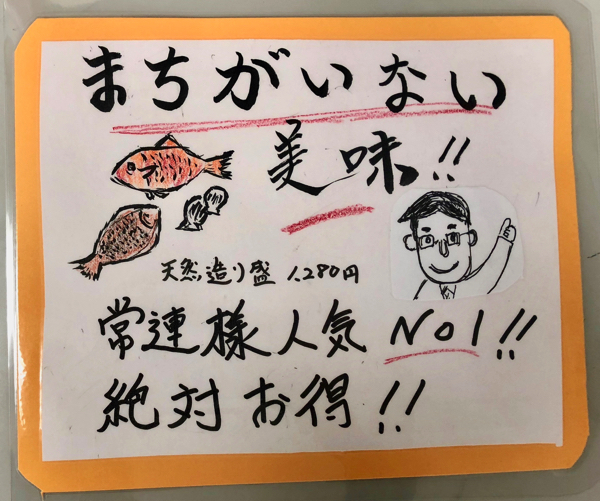 まちがいない
美味!!
天然造り盛 1,280円
常連様人気 No1!!
絶対お得!!